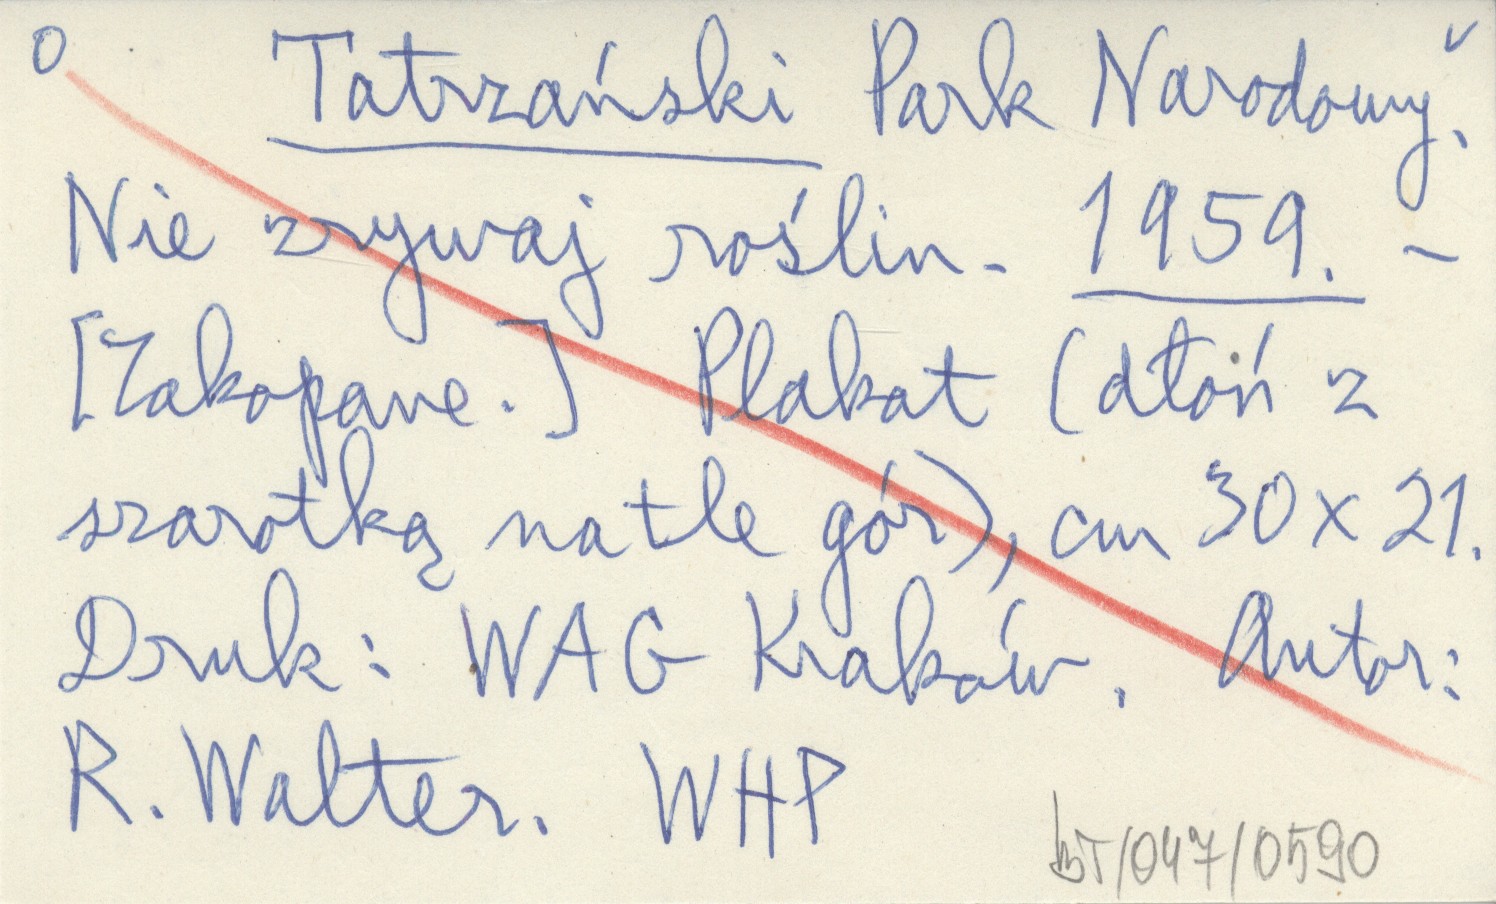 0 Tatrzański Park Narodowy.
Nie zrywaj roślin. 1959. -
[Zakopane.] Plakat (dłoń z
szarotką na tle gór), cm 30 x 21.
Druk: WAG Kraków. Autor:
R. Walter. WHP
BT/047/0590